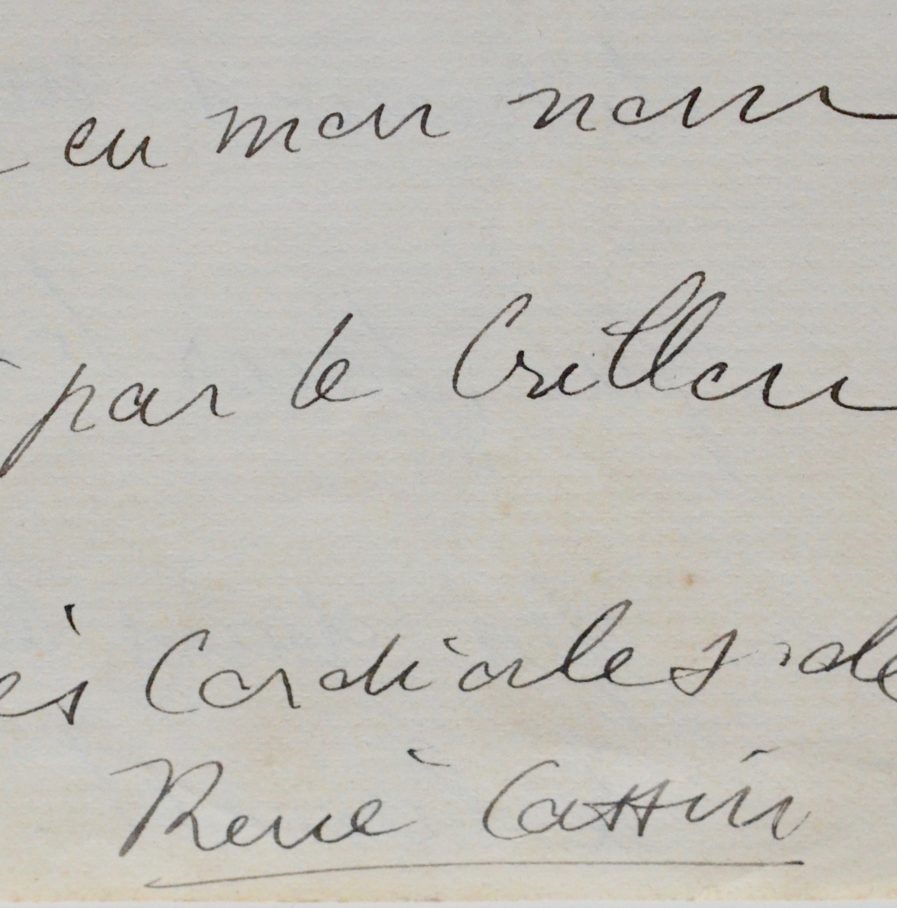 en mon nom
par le Crillon
ès Cordiales de
René Cassin